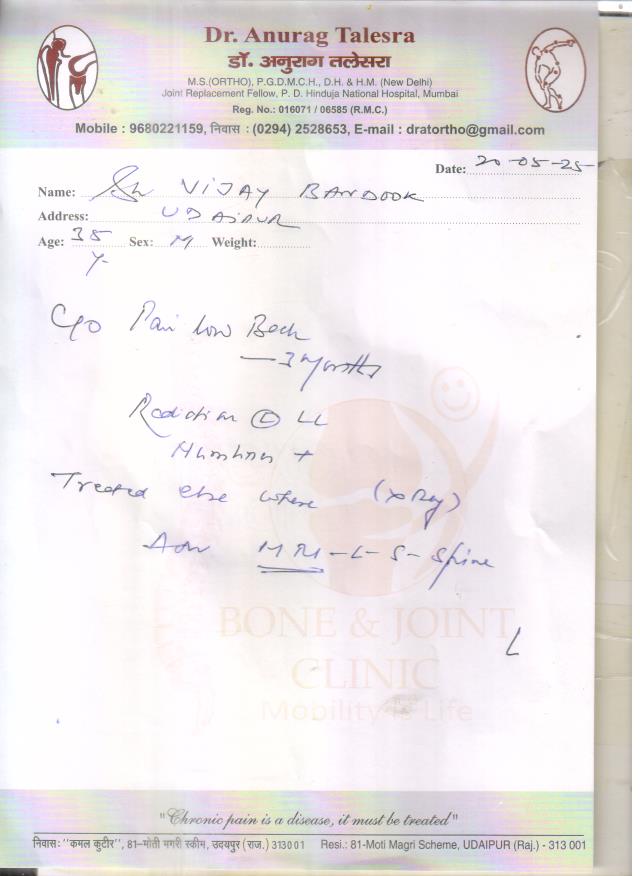 Dr. Anurag Talesra
डॉ. अनुराग तलेसरा
M.S.(ORTHO), P.G.D.M.C.H., D.H. & H.M. (New Delhi)
Joint Replacement Fellow, P. D. Hinduja National Hospital, Mumbai
Reg. No.: 016071 / 06585 (R.M.C.)
Mobile : 9680221159, निवास : (0294) 2528653, E-mail : dratortho@gmail.com
Date: 20-05-25
Name: Sh VIJAY BANDOOK
Address: UDAIPUR
Age: 38 Y Sex: M Weight:
C/O Pain low Back
— 3 Months
Radiation L LL
Numbness +
Treated else where (x Ray)
Adv MRI-L-S-Spine
BONE & JOINT
CLINIC
Mobility is Life
"Chronic pain is a disease, it must be treated"
निवास: "कमल कुटीर", 81-मोती मगरी स्कीम, उदयपुर (राज.) 313001 Resi.: 81-Moti Magri Scheme, UDAIPUR (Raj.) - 313 001